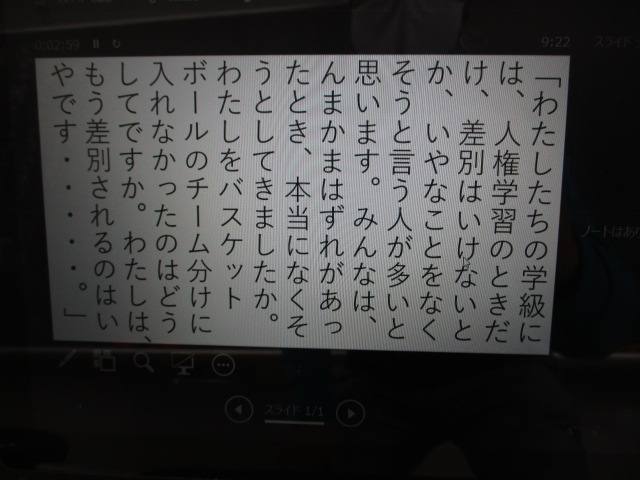 0:02:59
9:22
スライド
「わたしたちの学級に
は、人権学習のときだ
け、差別はいけないと
か、いやなことをなく
そうと言う人が多いと
思います。みんなは、
んまかまはずれがあっ
たとき、本当になくそ
うとしてきましたか。
わたしをバスケット
ボールのチーム分けに
入れなかったのはどう
してですか。わたしは、
もう差別されるのはい
やです・・・・・・。」
ノートはあり
スライド 1/1